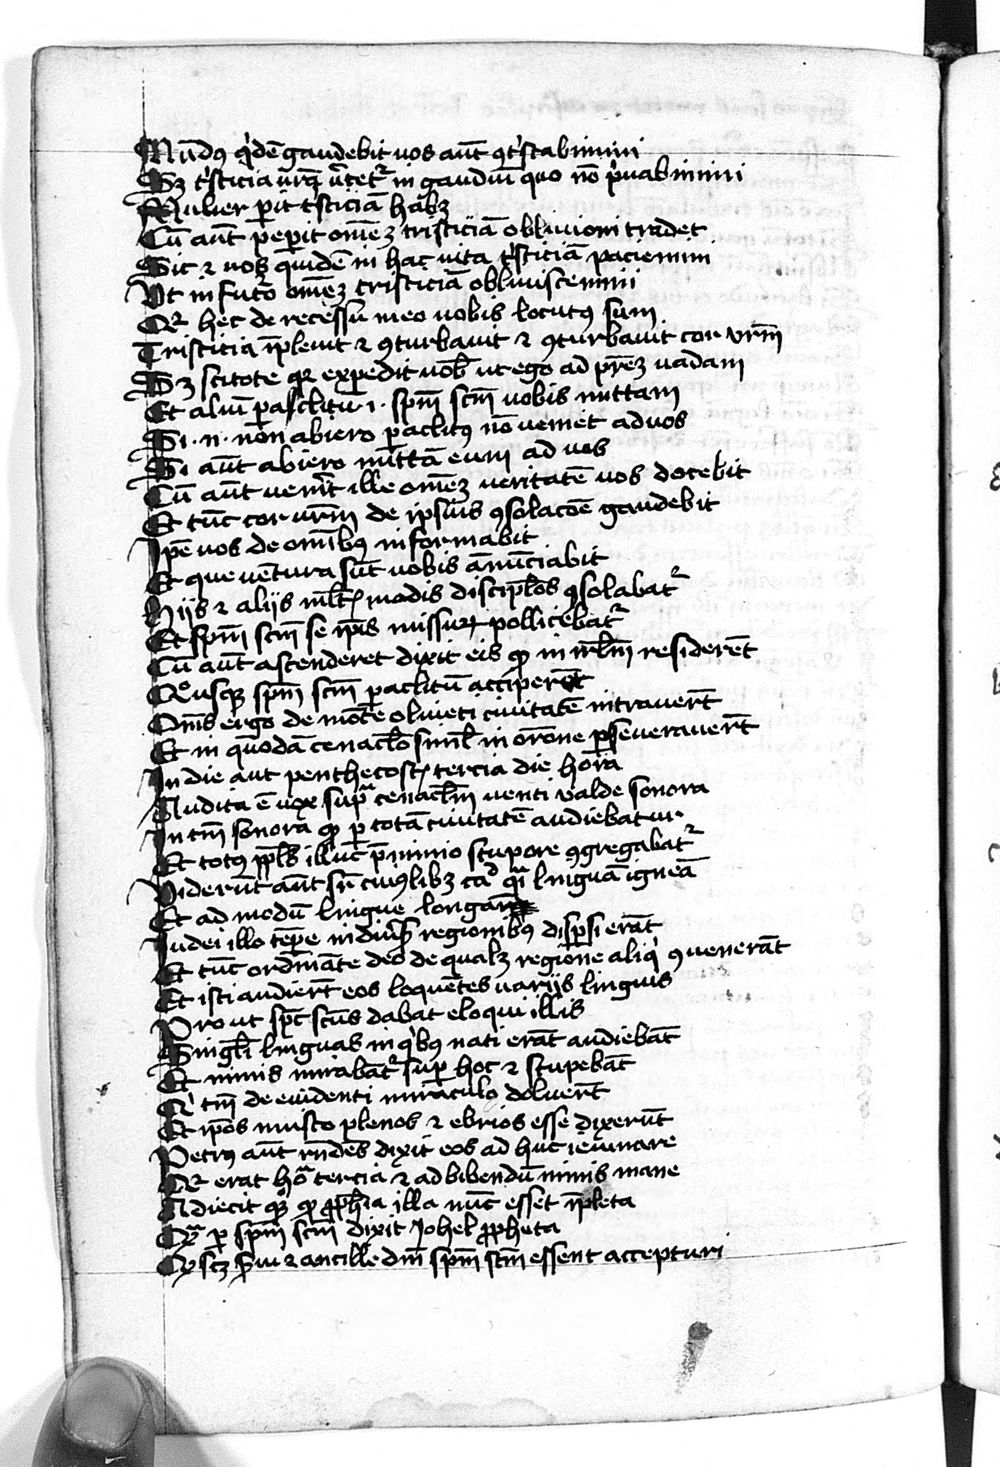 Mūdꝰ q̇dē gaudebit uos aūt ꝯtͥstabimini
Sꝫ tͥsticia ur̄a u̓tet᷑ in gaudiū quo nō p̓uabimini
Mulier parit tͥsticiā habꝫ
Cū aūt pepit om̄eꝫ tristiciā obliuioni tradet
Sic ⁊ uos quidē in hac uita tͥsticiā paciemini
Vt in futo om̄eꝫ tristiciā obliuiscemini
Qꝛ hec de recessu meo uobis locutꝰ sum
Tristicia īpleuit ⁊ ꝯturbauit ⁊ ꝯturbauit cor vr̄m
Sꝫ scitote qꝛ expedit uob̄ ut ego ad pr̄eꝫ uadam
Et aliū paclitū .i. sp̄m sc̄m uobis mittam
Si .n. non abiero paclitꝰ nō ueniet ad uos
Si aūt abiero mittā eum ad uos
Cū aūt uen̄it ille om̄eꝫ ueritatē uos docebit
Et tūc cor ur̄m de ipsius ꝯsolacōe gaudebit
Ipē uos de om̄ibꝰ informabit
Et que uētura sūt uobis ānūciabit
Hijs ⁊ alijs ml̄t modis discipl̄os ꝯsolabat᷑
Et sp̄m sc̄m se ip̄is missuꝝ pollicebat᷑
Cū aūt ascenderet dixit eis qꝫ in irl̄m residerēt
Quousqꝫ sp̄m sc̄m paclitū acciperēt
Om̄s ergo de mōte oliueti ciuitatē intrauer̄t
Et in quodā cenacl̄o siml̄ in or̄one pseuerauer̄t
In die aut penthecost tercia die hora
Audita ē uox supͣ cenacl̄m uenti valde sonora
In tm̄ sonora qꝫ p totā ciuitatē audiebatur
Et totꝰ ppl̄s illuc p̄ nimio stupore ꝯgregabat᷑
Viderūt aūt sr̄ cuiꝰlibꝫ caͩ qͣi linguā igneā
Et ad modū lingue longam
Iudei illo tēpe in diu̓s̄ regionibꝰ dispsi erāt
Et tūc ordināte deo de qualꝫ regione aliq̇ ꝯuenerāt
Et isti audier̄t eos loquētes uarijs linguis
Prout sp̄c sc̄us dabat eloqui illis
Singl̄i linguas in q̇bꝰ nati erāt audiebāt
Et nimis mirabāt᷑ sup hoc ⁊ stupebāt
Qͥ tm̄ de euidenti miraculo doluer̄t
Et ip̄os musto plenos ⁊ ebrios esse dixerūt
Petrꝰ aūt rn̄dēs dixit eos ad huc ieiunare
Qꝛ erat hoͣ tercia ⁊ ad bibendū nimis mane
Adiecit qꝫ qꝫ ꝓph̄ia illa nūc esset īpleta
Qͣ p sp̄m sc̄m dixit Johel ꝓpheta
Qꝫ scꝫ s̓ui ⁊ ancille dn̄i sp̄m sc̄m essent accepturi